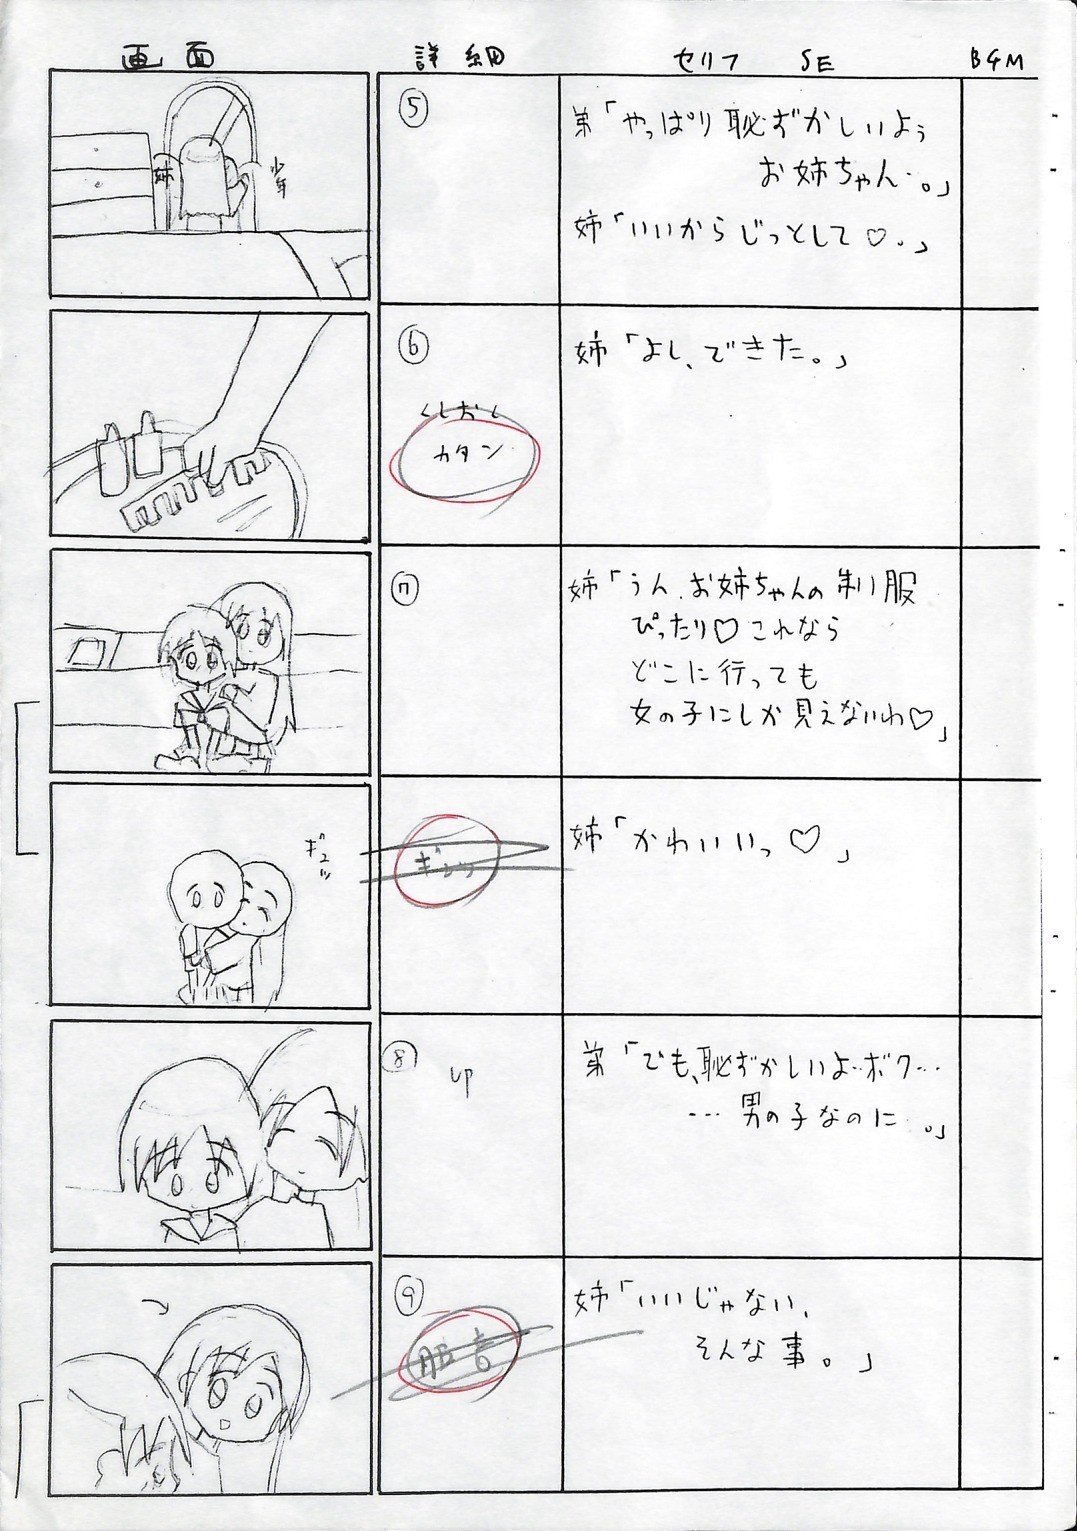 画面 詳細 セリフ SE BGM
⑤
弟「やっぱり恥ずかしいよぅ
お姉ちゃん…。」
姉「いいからじっとして♡.」
姉
少年
⑥
くしおく
カタン
姉「よし、できた。」
⑦
姉「うん、お姉ちゃんの制服
ぴったり♡これなら
どこに行っても
女の子にしか見えないわ♡」
ギュッ
ギュッ
姉「かわいいっ♡」
⑧
up
弟「でも、恥ずかしいよ…ボク…
…男の子なのに…。」
⑨
服音
姉「いいじゃない、
そんな事。」